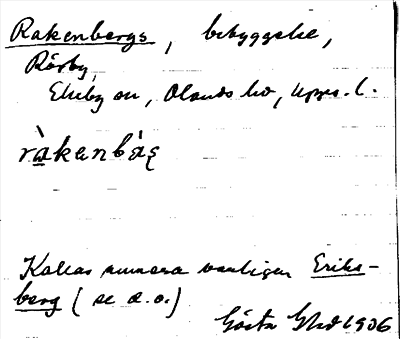 Rakenbergs, bebyggelse,
Rörby,
Ekeby sn, Olands hd, Upps. l.
ràkenbá̀ʂ
Kallas numera vanligen Eriks-
berg (se d.o.)
Gösta 1906